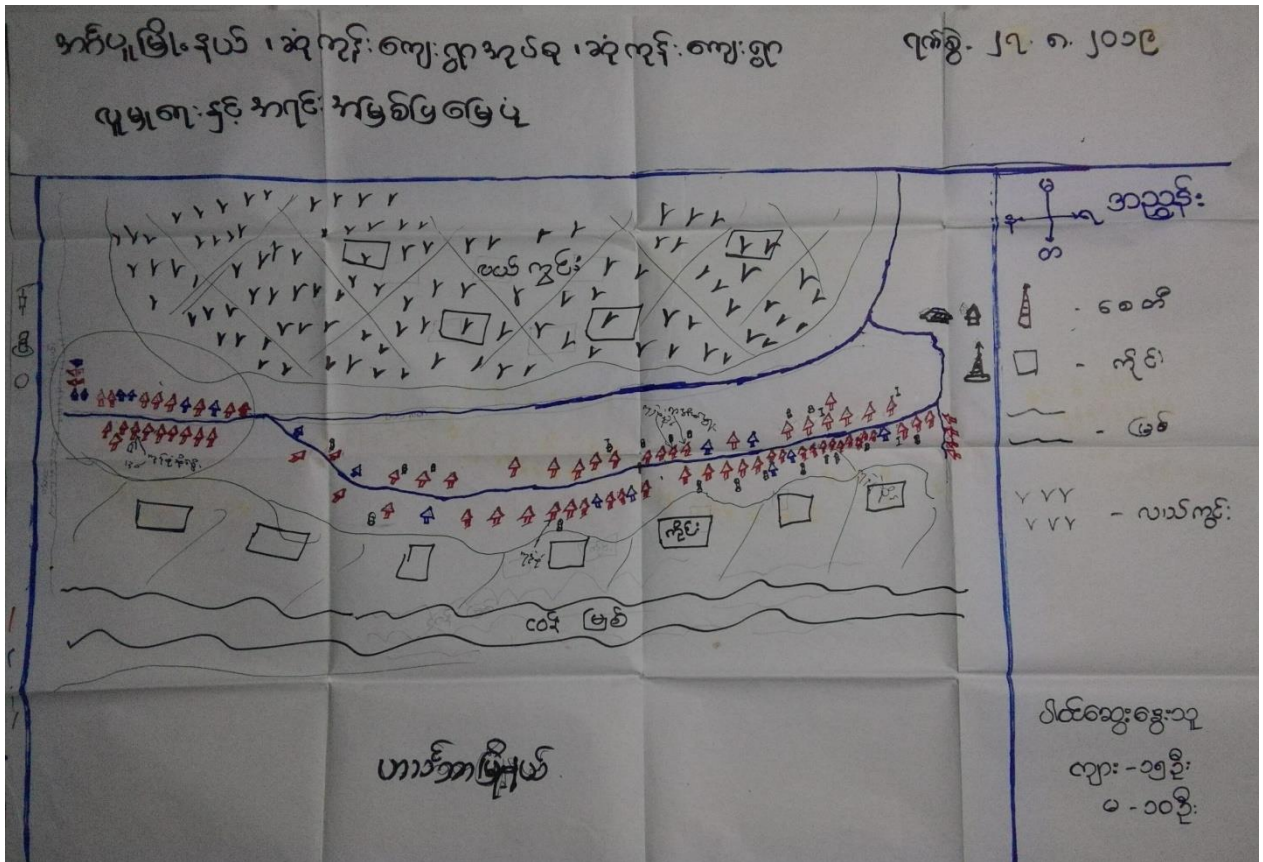 အင်္ဂပူမြို့နယ် ၊ ဆုံကုန်းကျေးရွာအုပ်စု ၊ ဆုံကုန်းကျေးရွာ
ရက်စွဲ - ၂၇. ၈. ၂၀၁၉
လူမှုရေးနှင့် အရင်းအမြစ်ပြမြေပုံ
လယ်ကွင်း
ကိုင်း
ငဝန် မြစ်
ဟင်္သာတမြို့နယ်
မ
န
ရ
တ
အညွှန်း
- စေတီ
- ကိုင်း
- မြစ်
- လယ်ကွင်း
ပါဝင်ဆွေးနွေးသူ
ကျား - ၁၅ဦး
မ - ၁၀ဦး